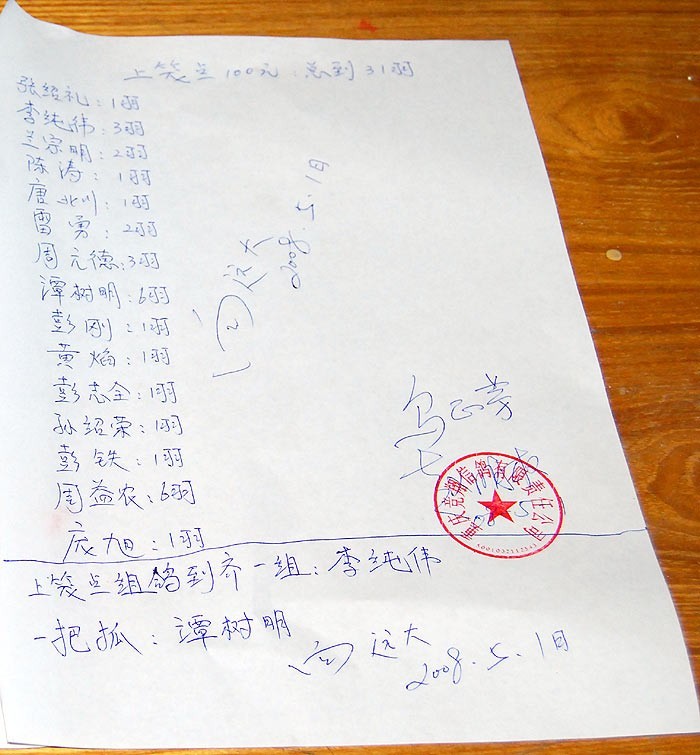 上笼只100元:总到31羽
张绍礼:1羽
李纯伟:3羽
兰宗明:2羽
陈涛:1羽
唐北川:1羽
雷勇:2羽
周元德:3羽
潭树明:6羽
彭刚:1羽
黄焰:1羽
彭志全:1羽
孙绍荣:1羽
彭铁:1羽
周益农:6羽
庞旭:1羽
远大
2008.5.1日
正芳
重庆竞翔信鸽有限责任公司
上笼只组鸽到齐一组:李纯伟
一把抓:潭树明
远大
2008.5.1日